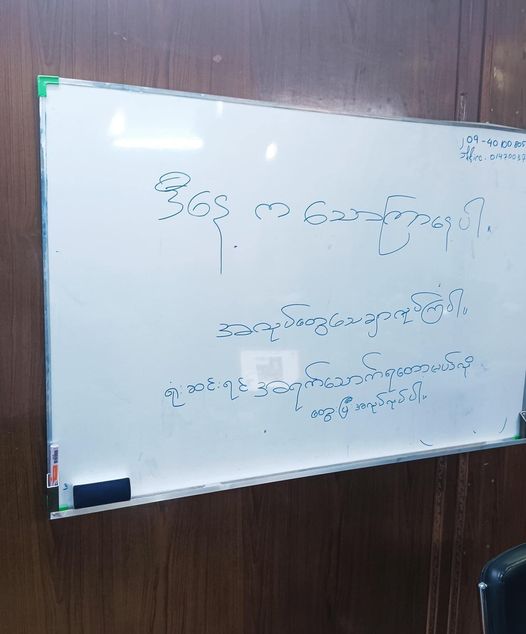 09-40100805
Office: 01470037
ဒီနေ့ က သောကြာနေ့ ပါ။
အလုပ်တွေသေချာလုပ်ကြပါ။
ရုံးဆင်းရင် အရက်သောက်ရတော့မယ်လို့
တွေးပြီးအလုပ်လုပ်ပါ။